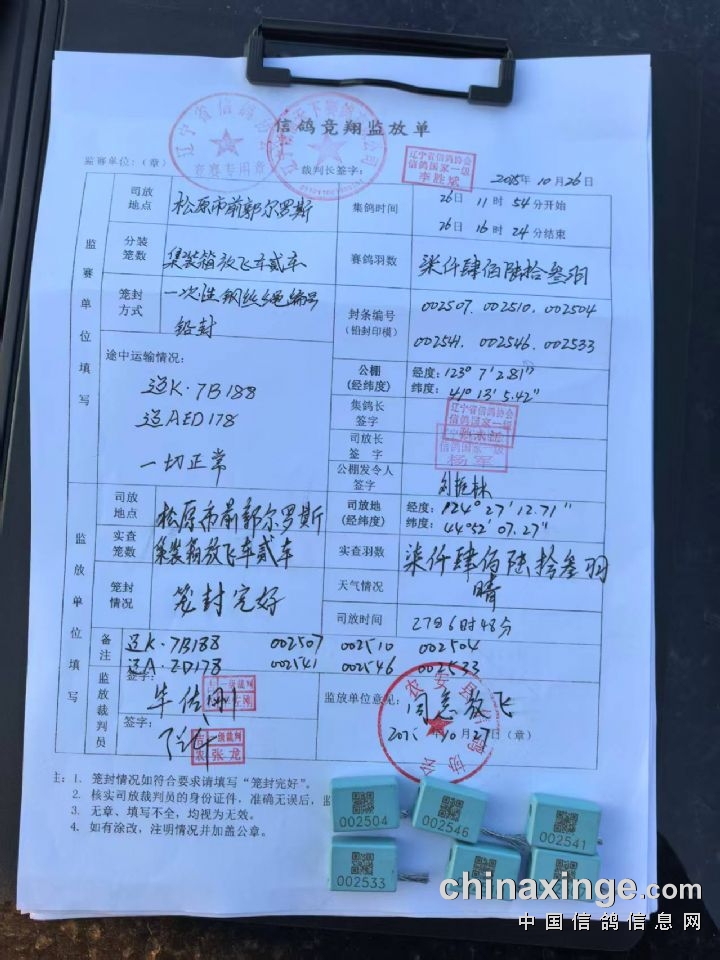 信鸽竞翔监放单
监赛单位：（章）
裁判长签字：
辽宁省信鸽协会
信鸽国家一级
李胜斌
10月26日
司放地点 松原市前郭尔罗斯
集鸽时间 26日11时54分开始
26日16时24分结束
分装笼数 集装箱放飞车贰车
赛鸽羽数 柒仟肆佰陆拾叁羽
笼封方式 一次性钢丝绳编号
铅封
封条编号（铅封印模） 002507、002510、002504
002541、002546、002533
监赛单位填写
途中运输情况：
辽K·7B188
辽AED178
一切正常
公棚（经纬度） 经度：123° 7'2.81"
纬度：41° 13' 5.42"
集鸽长签字
辽宁省信鸽协会
信鸽国家一级
司放长签字
信鸽国家一级
杨军
公棚发令人签字
司放地点 松原市前郭尔罗斯
司放地（经纬度） 经度：124° 27' 12.71"
纬度：44°52' 07.27"
实查笼数 集装箱放飞车贰车
实查羽数 柒仟肆佰陆拾叁羽
笼封情况 笼封完好
天气情况 晴
司放时间 27日6时48分
监放单位填写
备注 辽K·7B188 002507 002510 002504
辽A·ED178 002541 002546 002533
监放裁判员
签字：
签字：
张龙
监放单位意见：
同意放飞
10月27日（章）
注：1. 笼封情况如符合要求请填写“笼封完好”。
2. 核实司放裁判员的身份证件，准确无误后，监
3. 无章、填写不全，均视为无效。
4. 如有涂改，注明情况并加盖公章。
002504
002546
002541
002533
chinaxinge.com
中国信鸽信息网